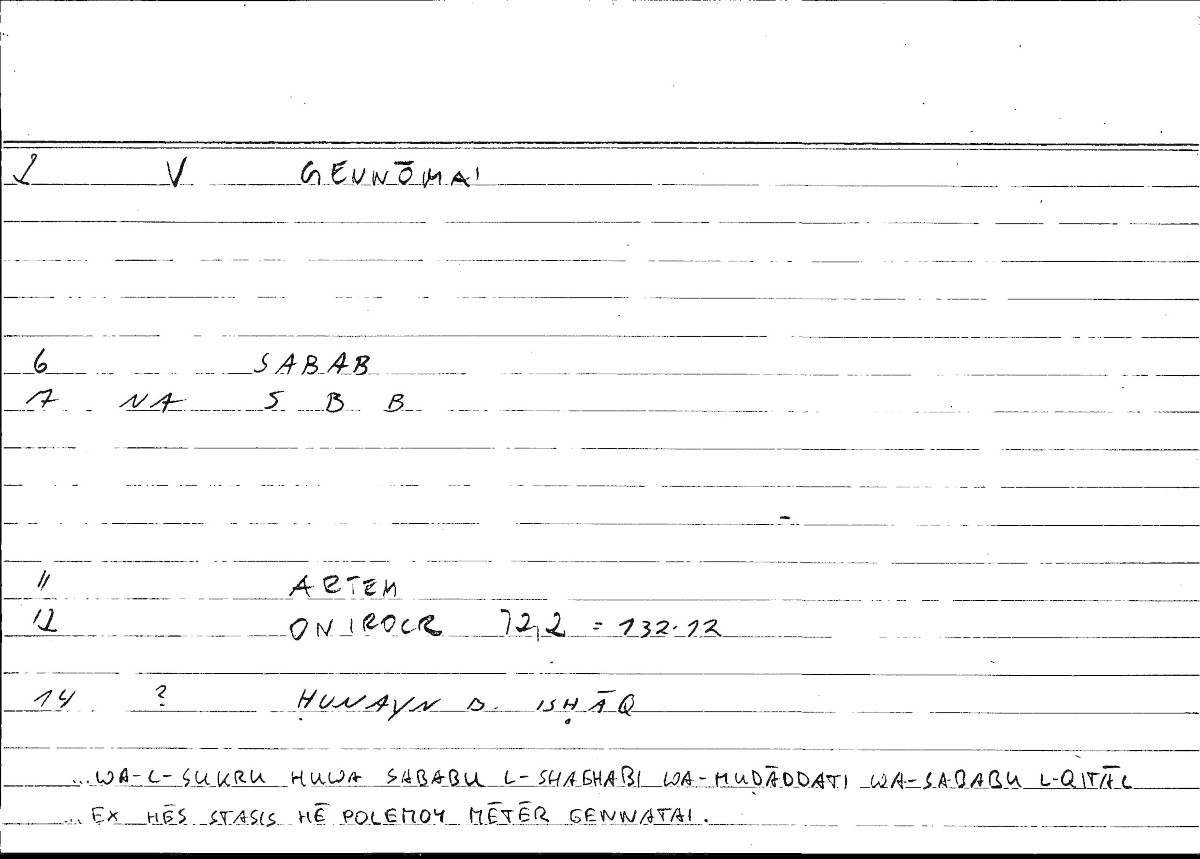 2 V GENNŌMAI
6 SABAB
7 NA S B B
11 ARTEM
12 ONIROCR 72,2 = 132.12
14 ? ḤUNAYN B. ISḤĀQ
...WA-L-SUKRU HUWA SABABU L-SHAGHABI WA-MUḌĀDDATI WA-SABABU L-QITĀL
... EX HĒS STASIS HĒ POLEMOY MĒTĒR GENNATAI.